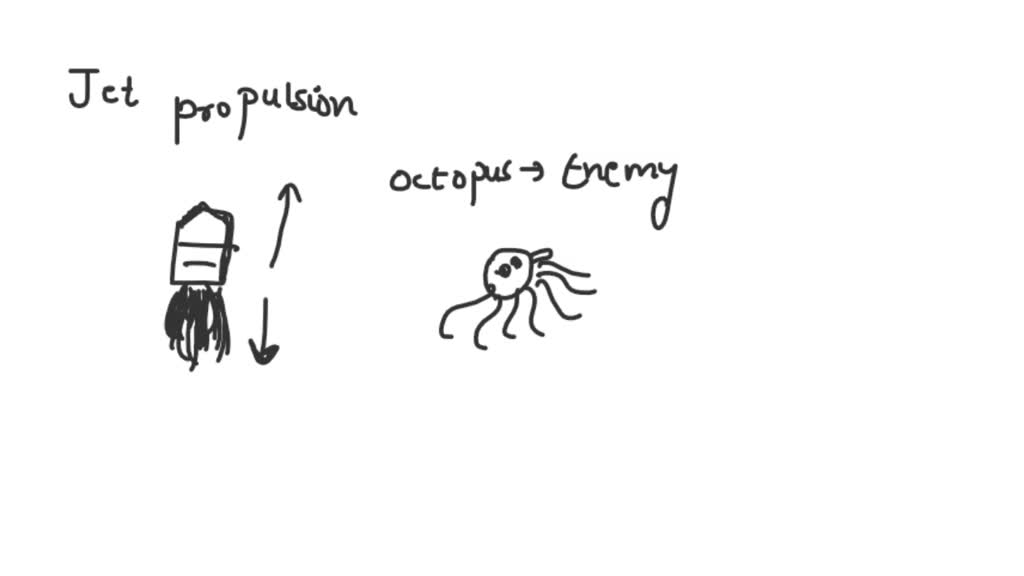 Jet propulsion
octopus → Enemy